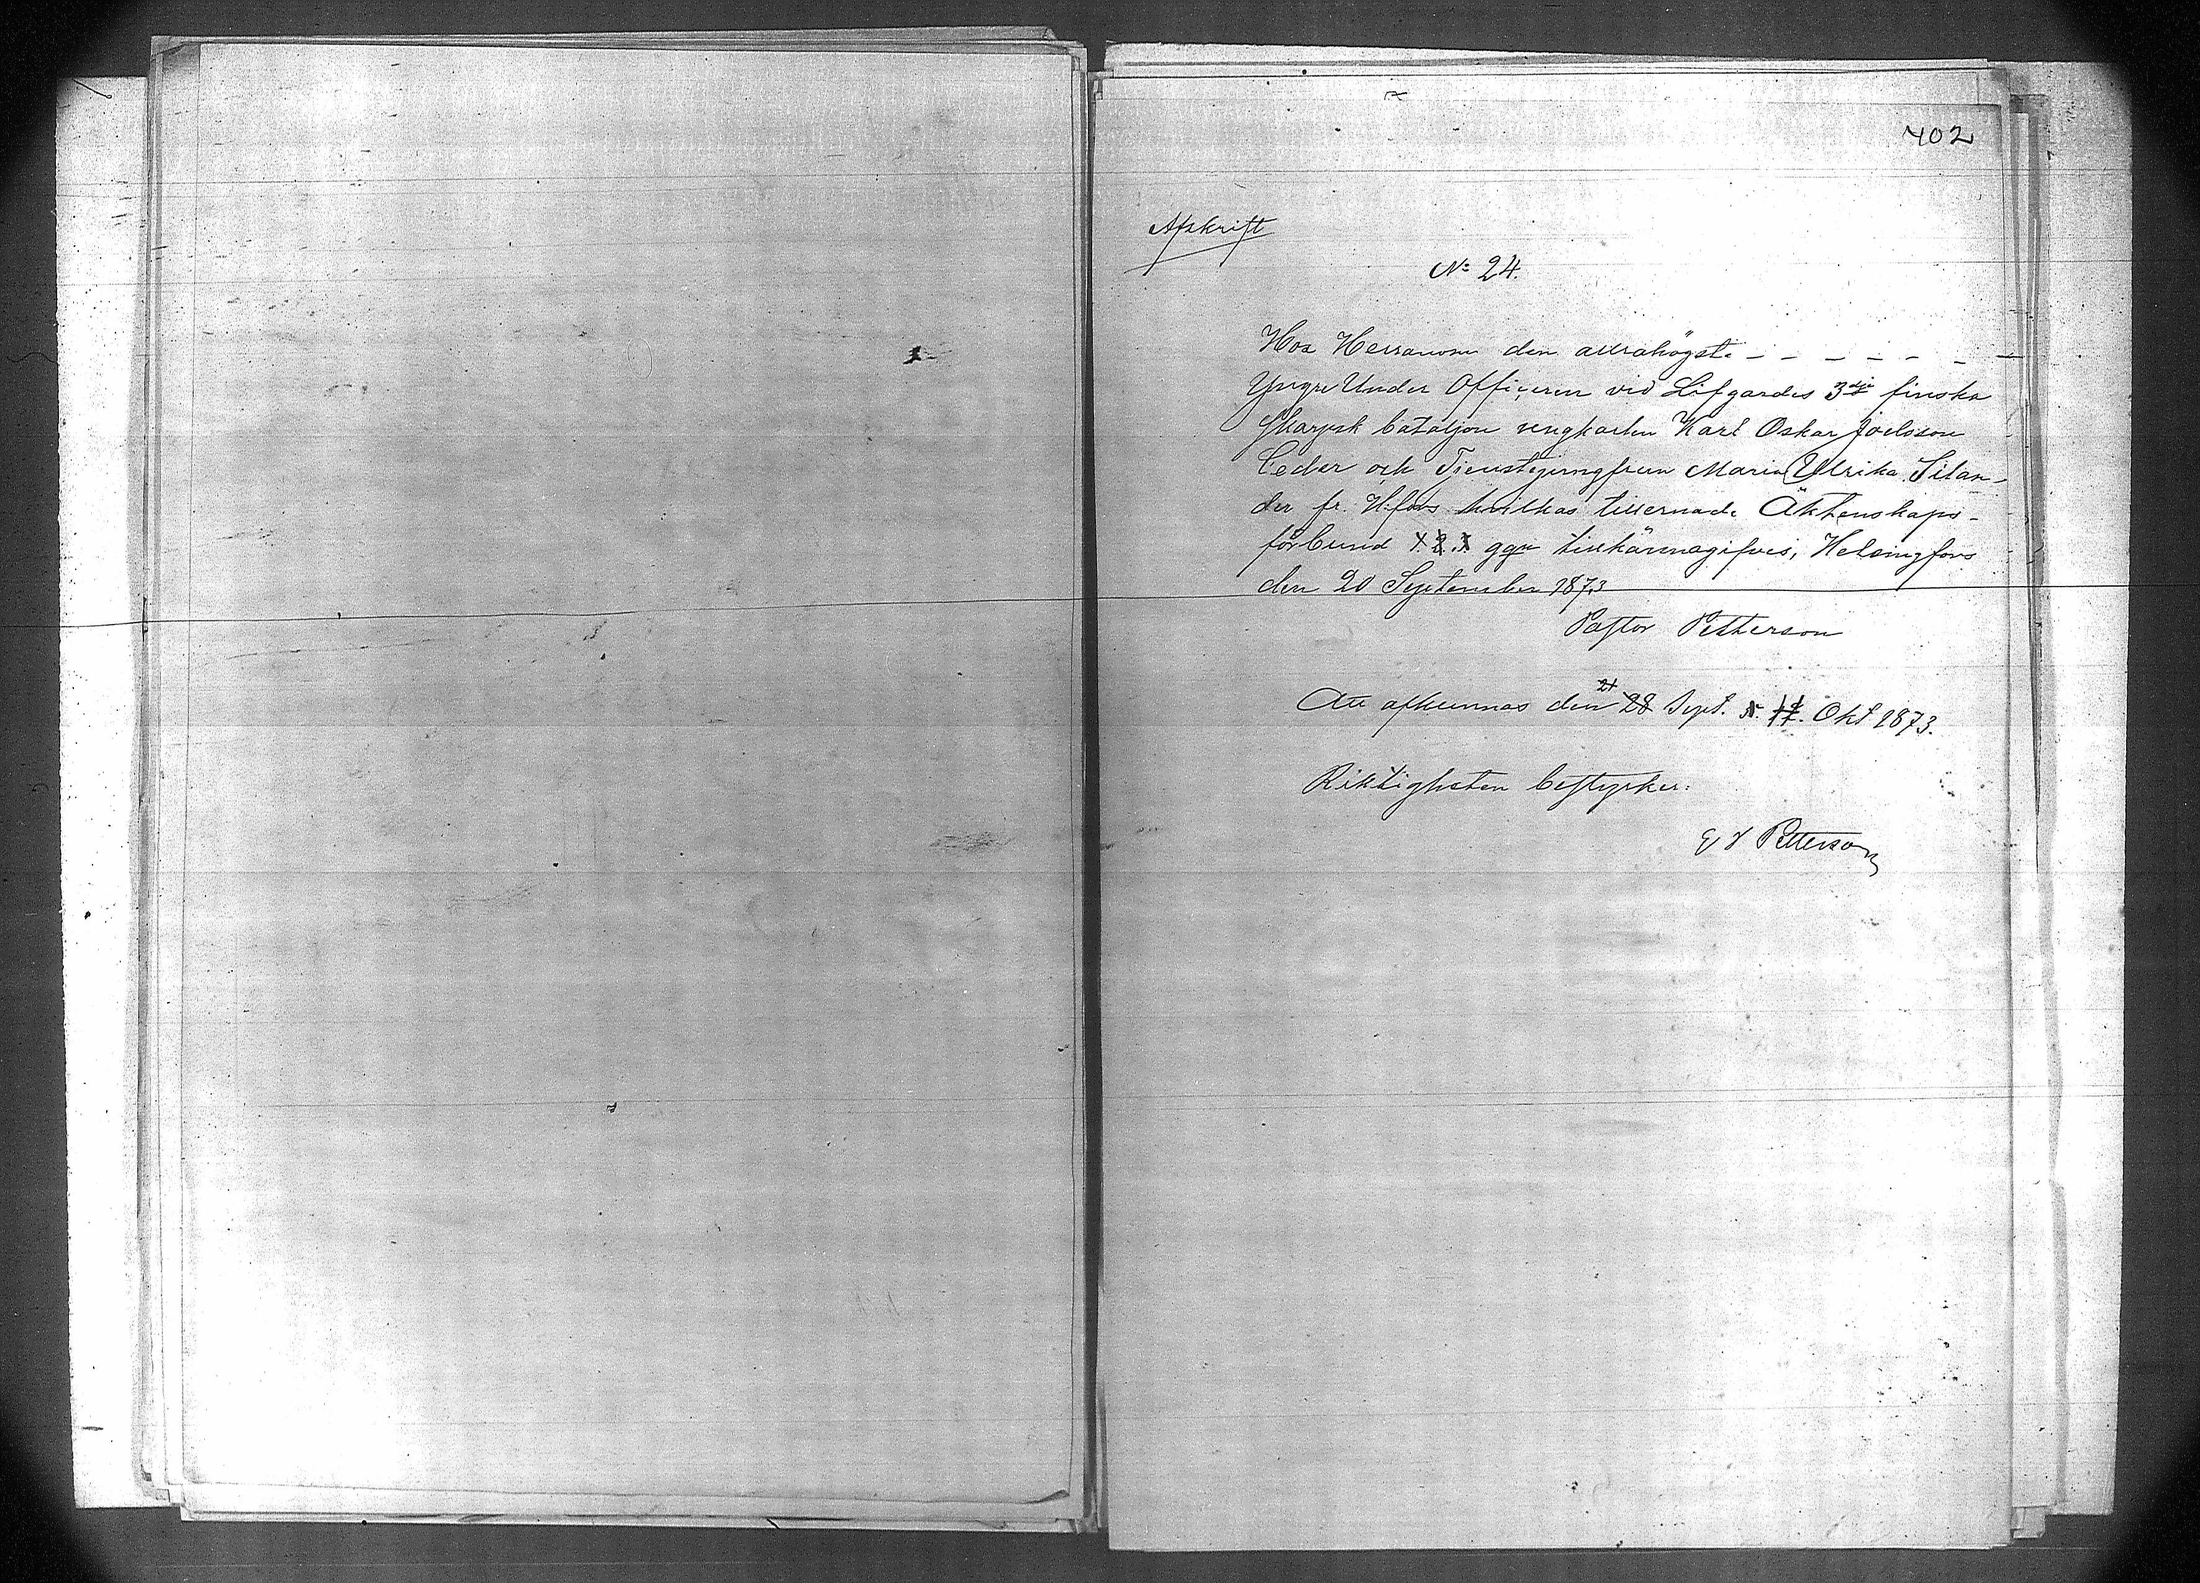 402
Afskrift
No 24.
Hos Herranom den allrahögste – – – – – – –
Yngre Under Officeren vid Lifgardes 3dje finska
Skarpsk bataljon ungkarlen Karl Oskar Joelsson
Ceder och Tjenstejungfrun Maria Ulrika Silan-
der fr. H:fors hvilkas tillernade Äktenskaps-
förbund 1. 2. 3 ggn tillkännagifves, Helsingfors
den 20 September 1873
Pastor Petterson
Att afkunnas den 21 28 Sept. Okt 1873.
Riktigheten bestyrker:
Petterson